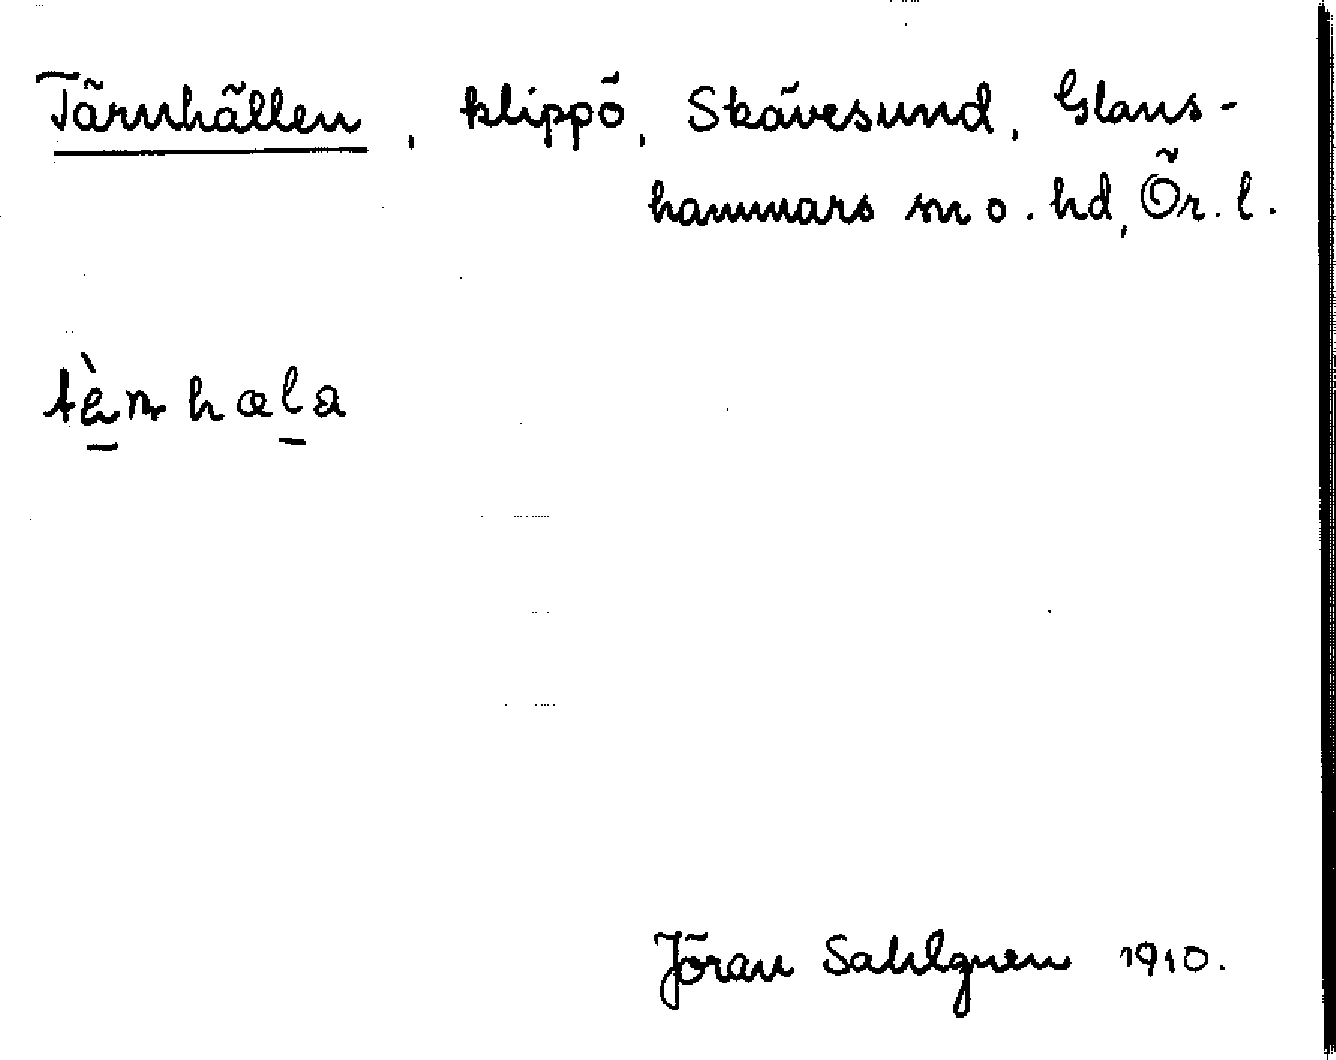 Tärnhällen, klippö, Skävesund, Glans-
hammars sn o. hd, Ör. l.
tæ̀n hæla
Jöran Sahlgren 1910.